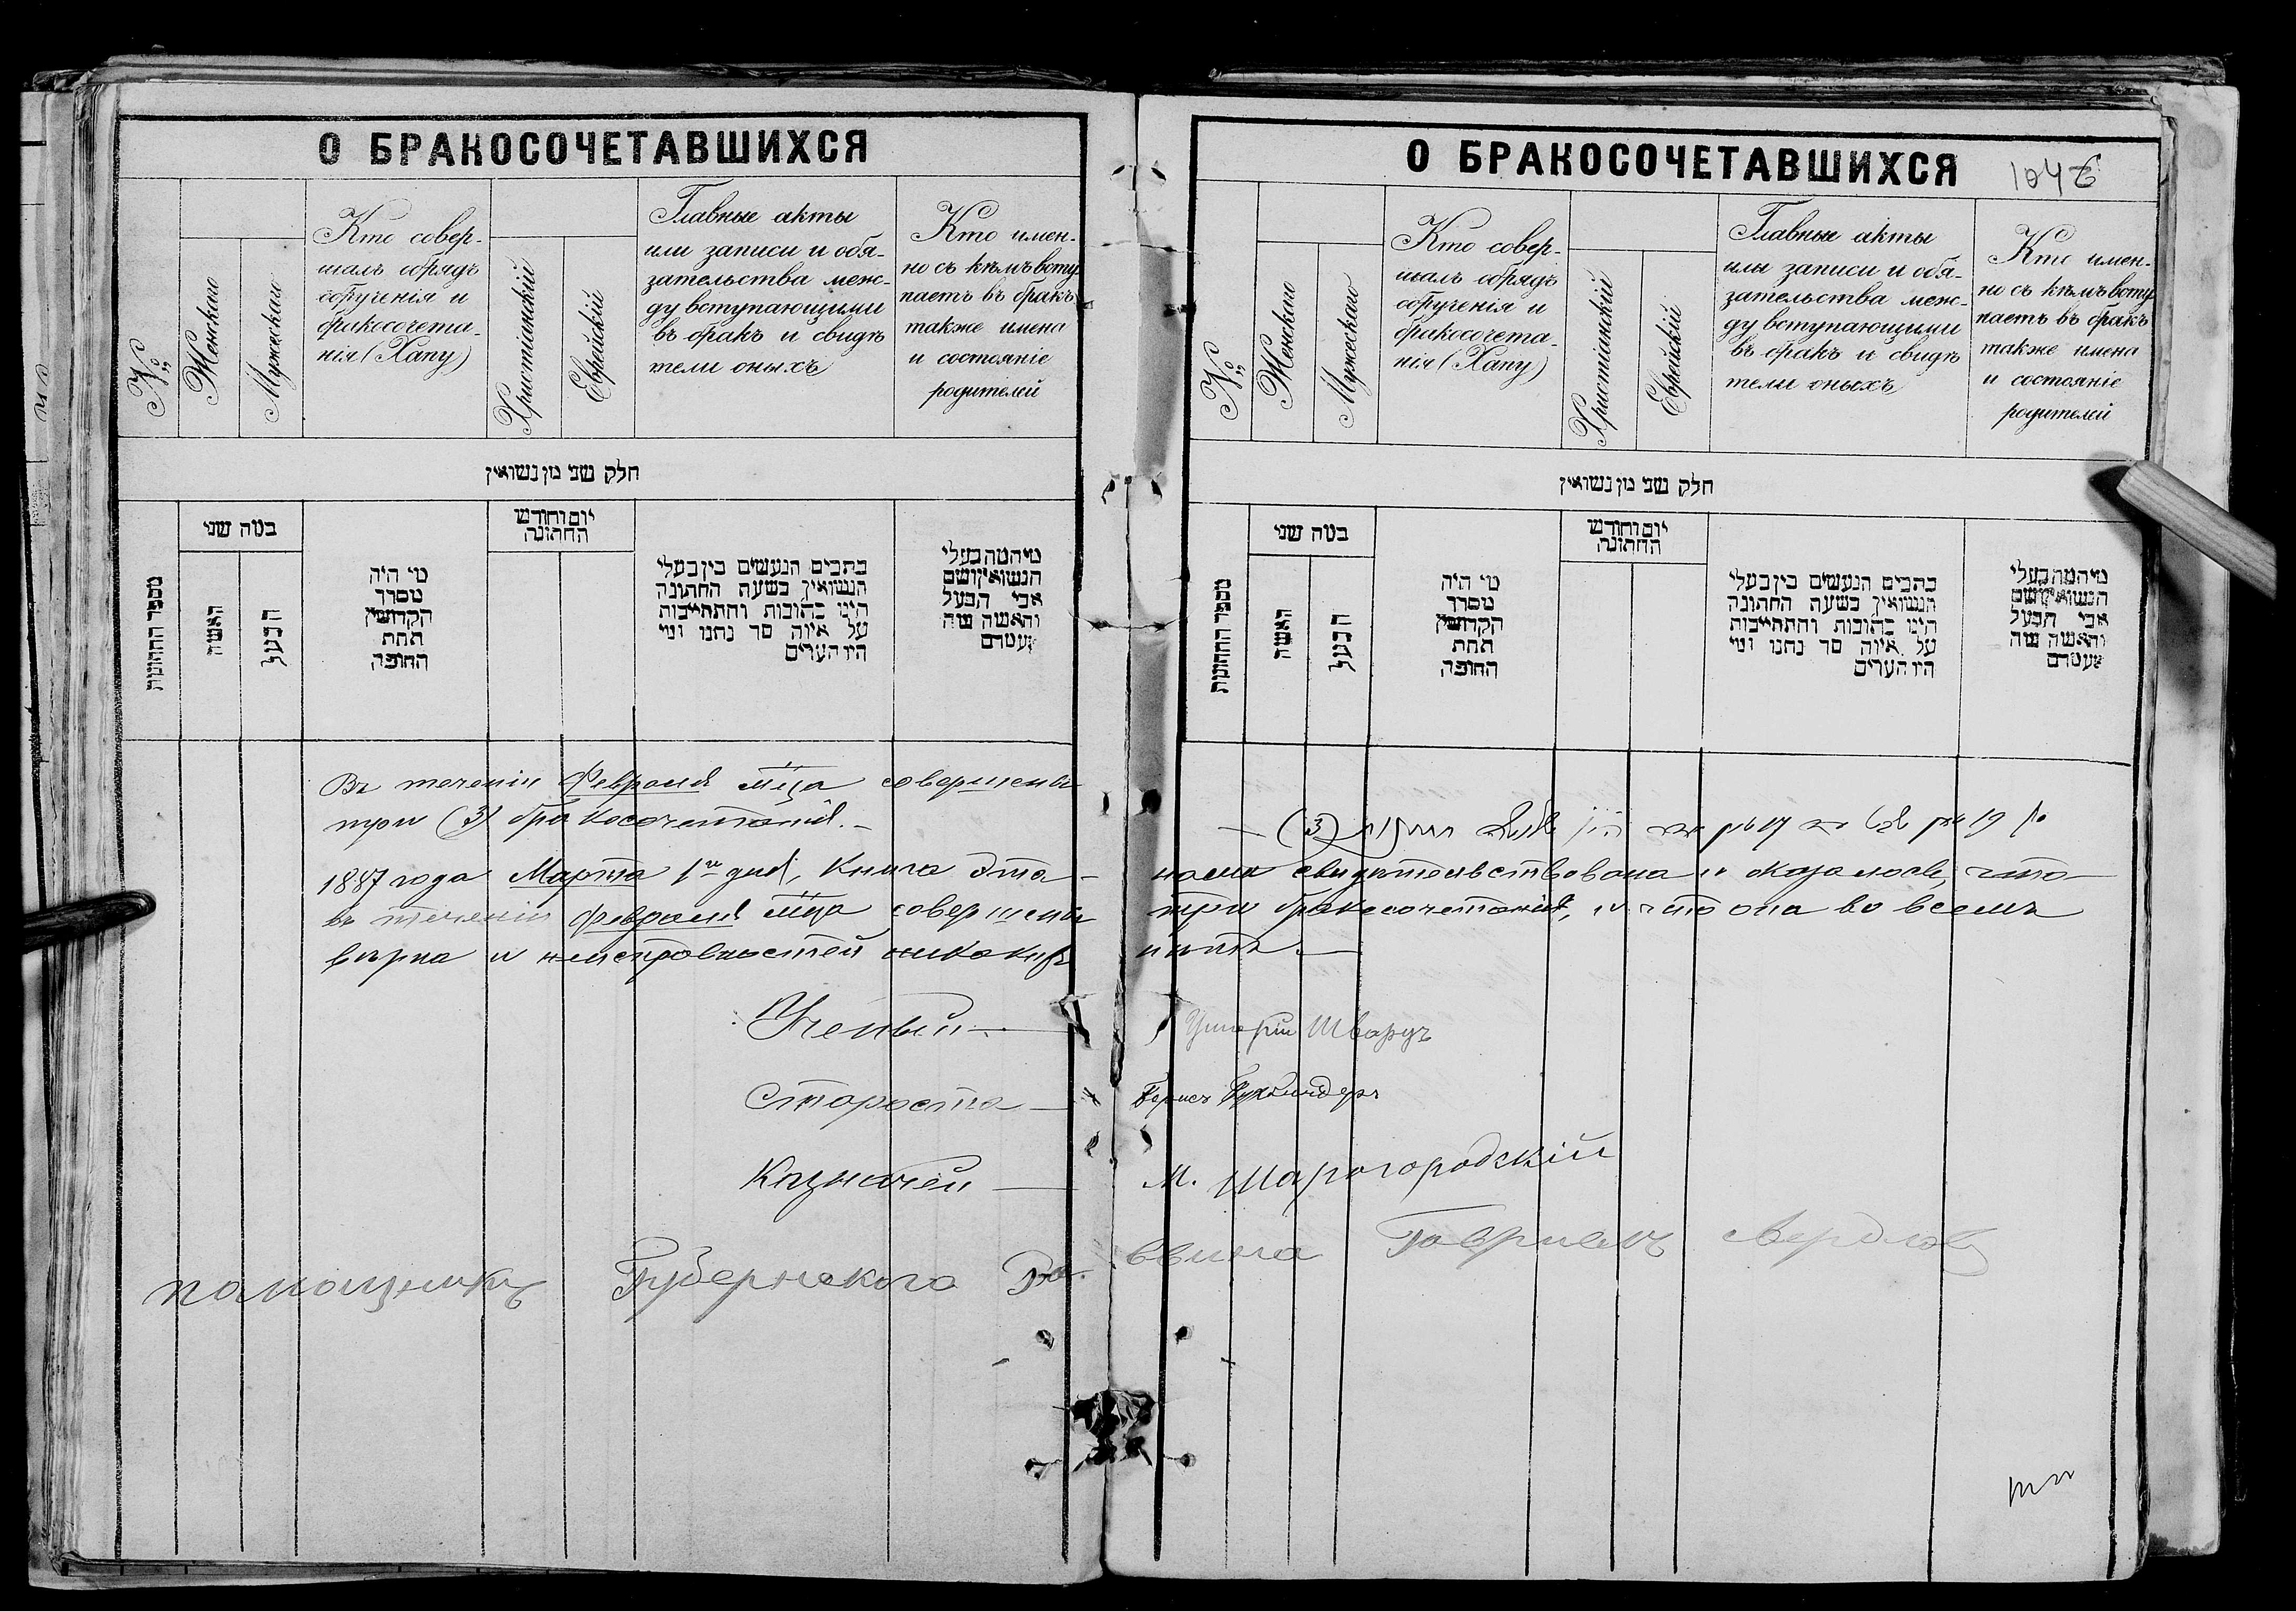 О БРАКОСОЧЕТАВШИХСЯ
№
Женскаго
Мужескаго
Кто совер-
шалъ обрядъ
обрученія и
бракосочета-
нія (Хапу)
Христіанскій
Еврейскій
Главные акты
или записи и обя-
зательства меж-
ду вступающими
въ бракъ и свидѣ
тели оныхъ
Кто имен-
но съ кѣмъ всту
паетъ въ бракъ
также имена
и состояніе
родителей
חלק שני מן נשואין
מספר החתונות
בטה שני
האשה
הבעל
מי היה
מסדר
הקדושין
תחת
החופה
יום וחודש
החתונה
כתבים הנעשים בין בעלי
הנשואין בשעת החתונה
היינו כתובות והתחייבות
על איזה סך נתנו ומי
היו העדים
מי המה בעלי
הנשואין ושם
אבי הבעל
והאשה
Въ теченіи Февраля мѣсяца совершены
три (3) бракосочетанія. –
1887 года Марта 1го дня, Книга эта –
въ теченіи Февраля мѣсяца совершены
вѣрна и неисправностей никакихъ
Ученый –
Староста –
Казначей –
помощникъ Губернскаго Ра
О БРАКОСОЧЕТАВШИХСЯ
104
№
Женскаго
Мужескаго
Кто совер-
шалъ обрядъ
обрученія и
бракосочета-
нія (Хапу)
Христіанскій
Еврейскій
Главные акты
или записи и обя-
зательства меж-
ду вступающими
въ бракъ и свидѣ
тели оныхъ
Кто имен-
но съ кѣмъ всту
паетъ въ бракъ
также имена
и состояніе
родителей
חלק שני מן נשואין
מספר החתונות
בטה שני
האשה
הבעל
מי היה
מסדר
הקדושין
תחת
החופה
יום וחודש
החתונה
כתבים הנעשים בין בעלי
הנשואין בשעת החתונה
היינו כתובות והתחייבות
על איזה סך נתנו ומי
היו העדים
מי המה בעלי
הנשואין ושם
אבי הבעל
והאשה
(3)
нами свидѣтельствована и оказалось, что –
три бракосочетанія, и что она во всемъ
нѣтъ. –
Шварцъ
Борисъ Бухбиндеръ
М. Шарогородскій
ввина Гавриелъ Свердловъ